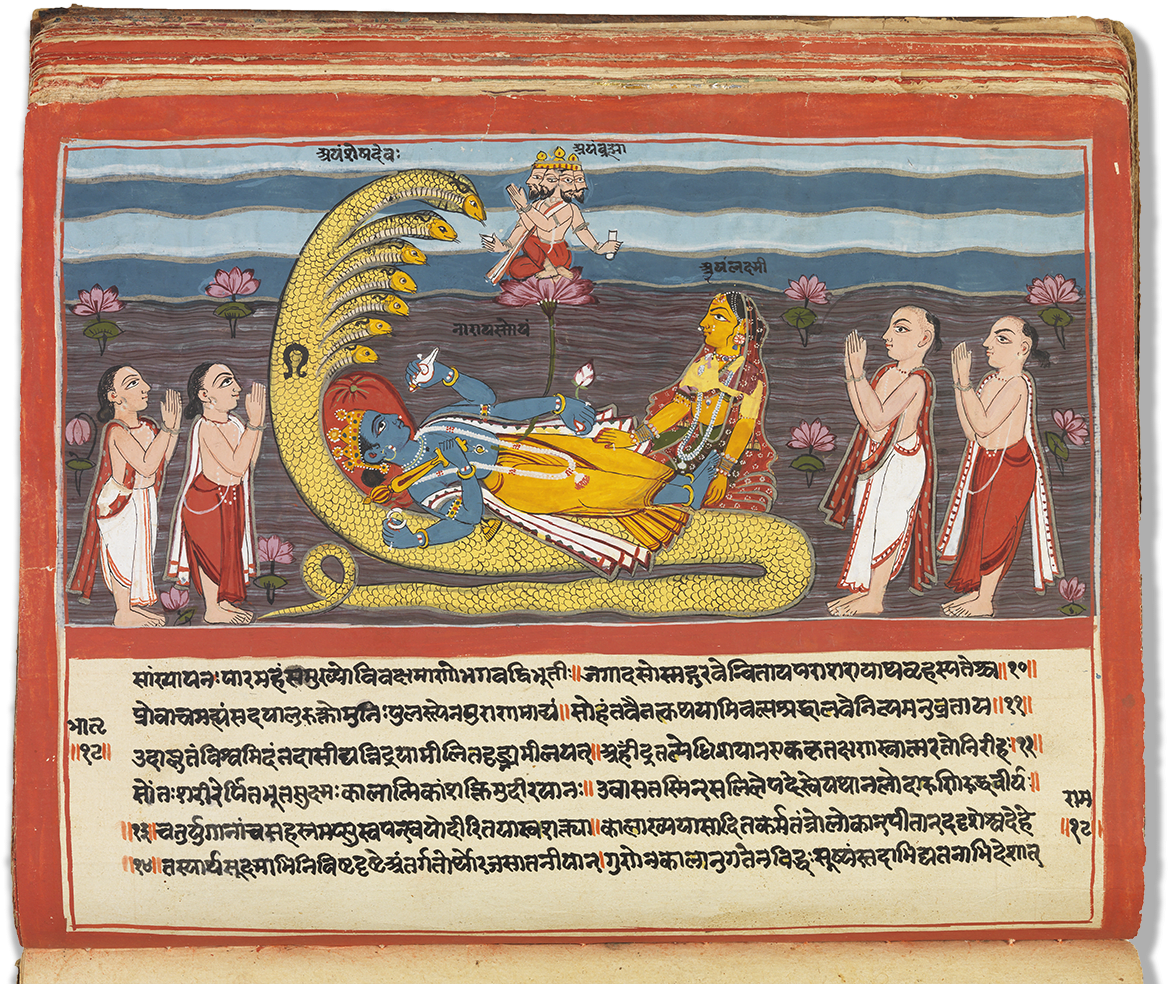 अयंशेषदेवः
अयंब्रह्मा
अयंलक्ष्मी
नारायणोयं
सांख्यायनः पारमहंसमुख्यो विवक्षमाणो भगवद्विभूतीः॥ जगाद सोस्मद्गुरवेन्विताय पराशरायाथ बृहस्पतेश्च॥१०॥
प्रोवाच मह्यं स दयालुरुक्तो मुनिः पुलस्त्येन पुराणमाद्यं॥ सोहं तवैतत्कथयामि वत्स श्रद्धालवे नित्यमनुव्रताय॥११॥
उदाप्लुतं विश्वमिदं तदासीद्यन्निद्रयामीलितदृङ्न्यमीलयत्॥ अहींद्रतल्पेधिशयान एकः कृतक्षणः स्वात्मरतो निरीहः॥१२॥
सोंतःशरीरेर्पितभूतसूक्ष्मः कालात्मिकां शक्तिमुदीरयानः॥ उवास तस्मिन्सलिले पदे स्वे यथानलो दारुणि रुद्धवीर्यः॥
॥१३॥ चतुर्युगानां च सहस्रमप्सु स्वपन्स्वयोदीरितया स्वशक्त्या॥ कालाख्ययासादितकर्मतंत्रो लोकानपीतान्ददृशे स्वदेहे
॥१४॥ तस्यार्थसूक्ष्माभिनिविष्टदृष्टेरंतर्गतोर्थो रजसा तनीयान्॥ गुणेन कालानुगतेन विद्धः सूष्यंस्तदाभिद्यत नाभिदेशात्
भा॰तृ
॥१८॥
राम
॥१८॥